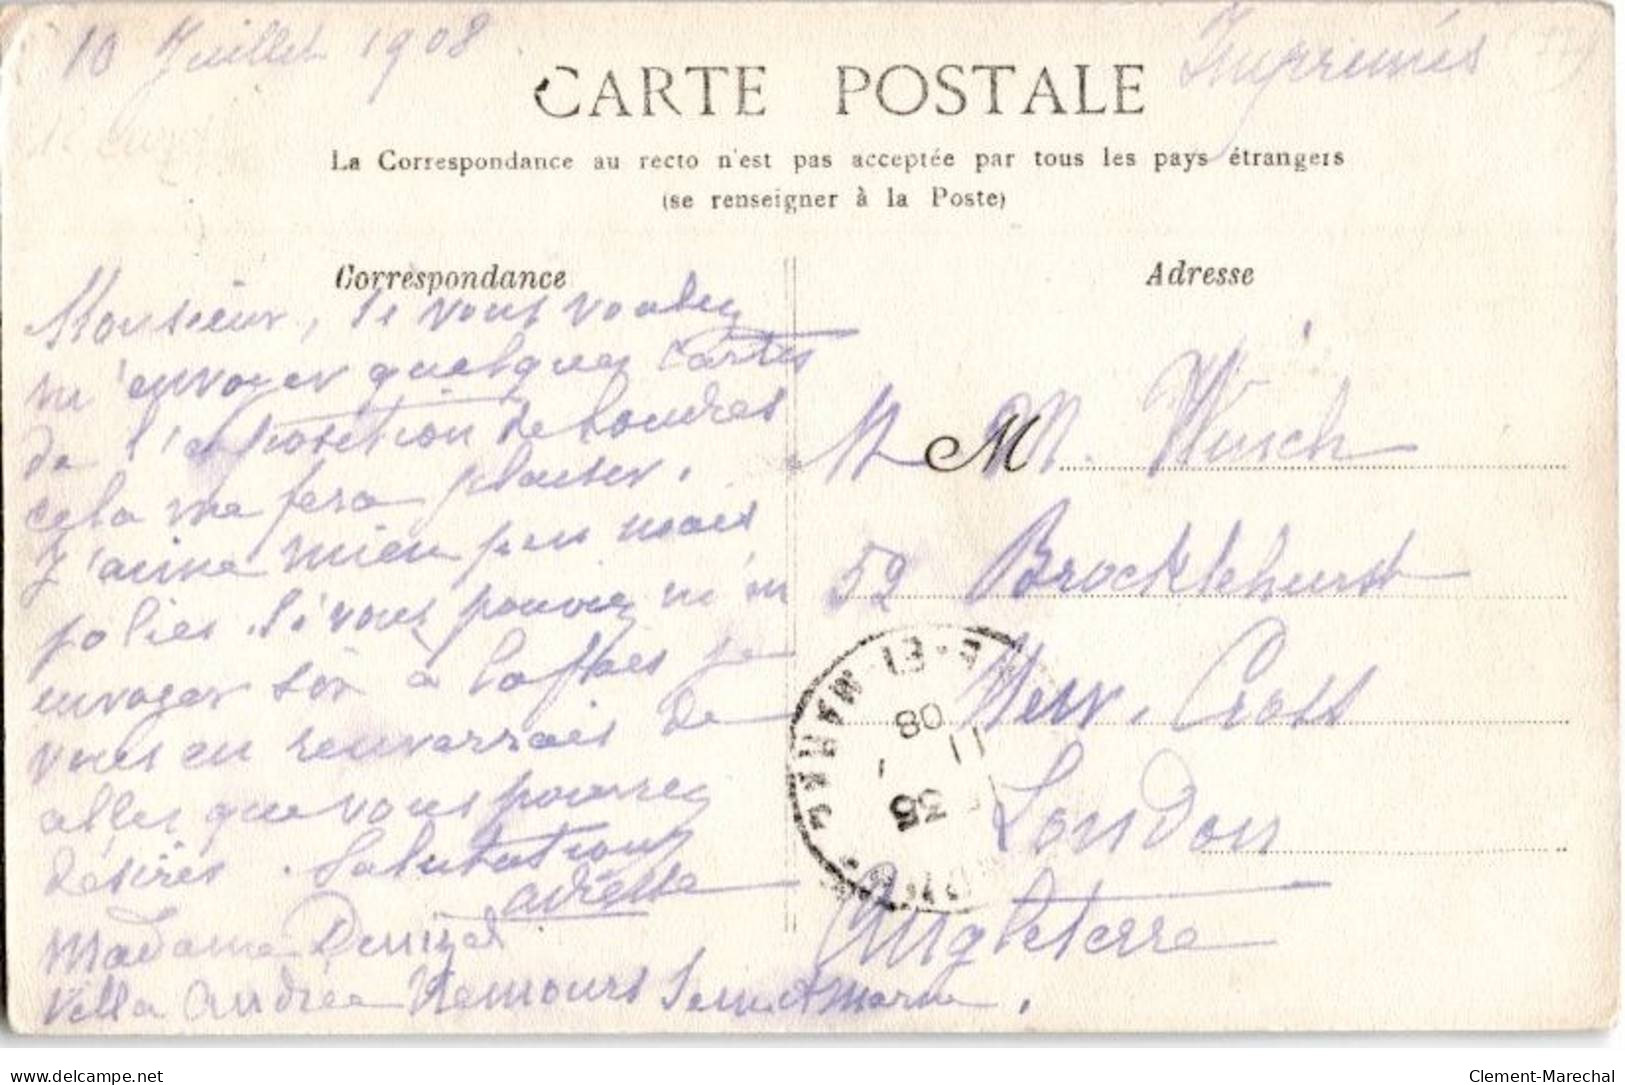 10 Juillet 1908
Imprimés
CARTE POSTALE
La Correspondance au recto n'est pas acceptée par tous les pays étrangers
(se renseigner à la Poste)
Correspondance
Monsieur, Si vous voulez
m'envoyer quelques cartes
de l'exposition de Londres
cela me fera plaisir.
J'aime mieu peu mais
jolies. Si vous pouviez m'en
envoyer 
vous en renverrais de
celles que vous pourrez
désirés. Salutations
adresse
Madame Denizet
Villa Andrée Nemours Seine et Marne.
Adresse
M
M M. Wusch
52 Brocklehurst
New. Cross
London
Angleterre
ET-MARNE
35
11
08
delcampe.net
Clement-Marechal